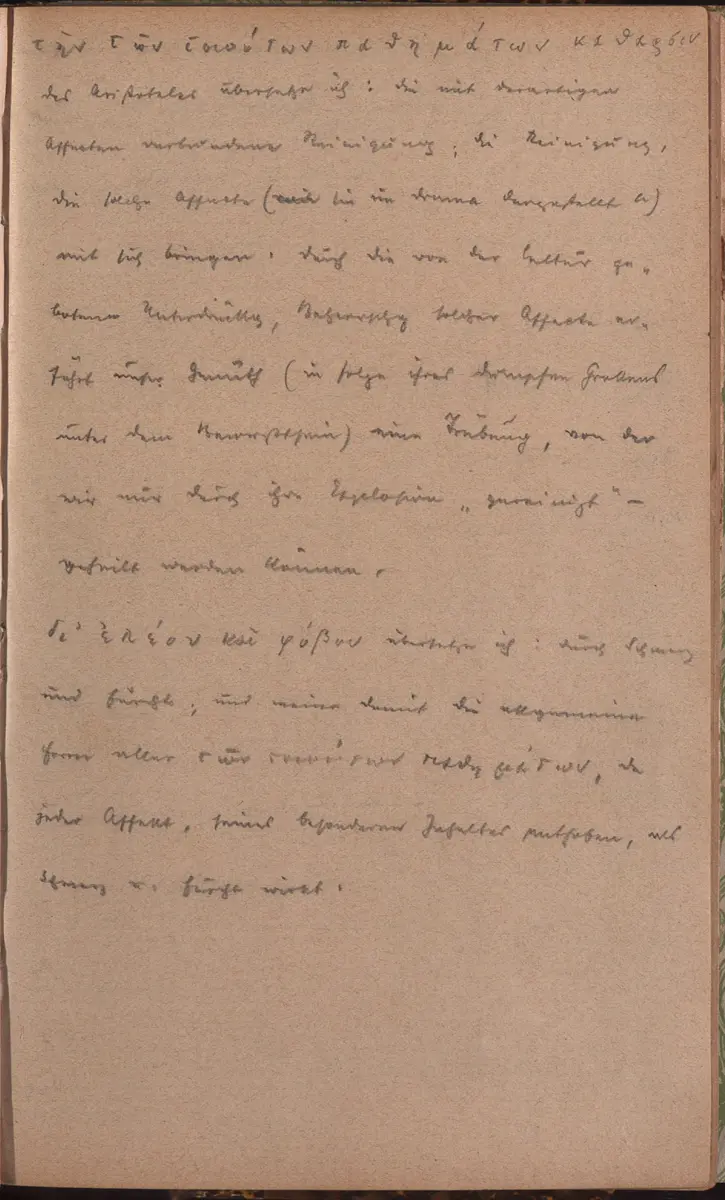 τὴν τῶν τοιούτων παθημάτων κάθαρσιν
des Aristoteles übersetze ich: die mit derartigen
Affecten verbundene Reinigung; die Reinigung,
die solche Affecte (wie sie im Drama dargestellt)
mit sich bringen. Durch die von der Cultur ge-
botene Unterdrückg, Beherrschg solcher Affecte er-
fährt unser Gemüth (in folge ihres dumpfen
unter dem Bewusstsein) eine Trübung, von der
wir nur durch ihre Explosion „gereinigt" –
geheilt werden können.
δι' ἐλέου καὶ φόβου übersetze ich: durch Schmerz
und Furcht; und meine damit die allgemeine
Form aller τῶν τοιούτων παθημάτων, da
jeder Affekt, seines besonderen Inhaltes enthoben, als
Schmerz u. Furcht wirkt.